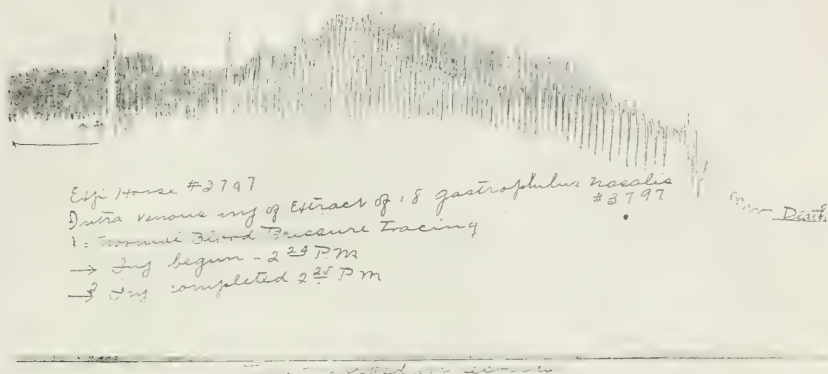 Exp Horse #3797
Intra venous inj of Extract of 18 gastrophulus nasalis
#3797
1 = Normal Blood Pressure Tracing
→ Inj begun - 2 24 P.M
→ Inj completed 2 25 P m
Death